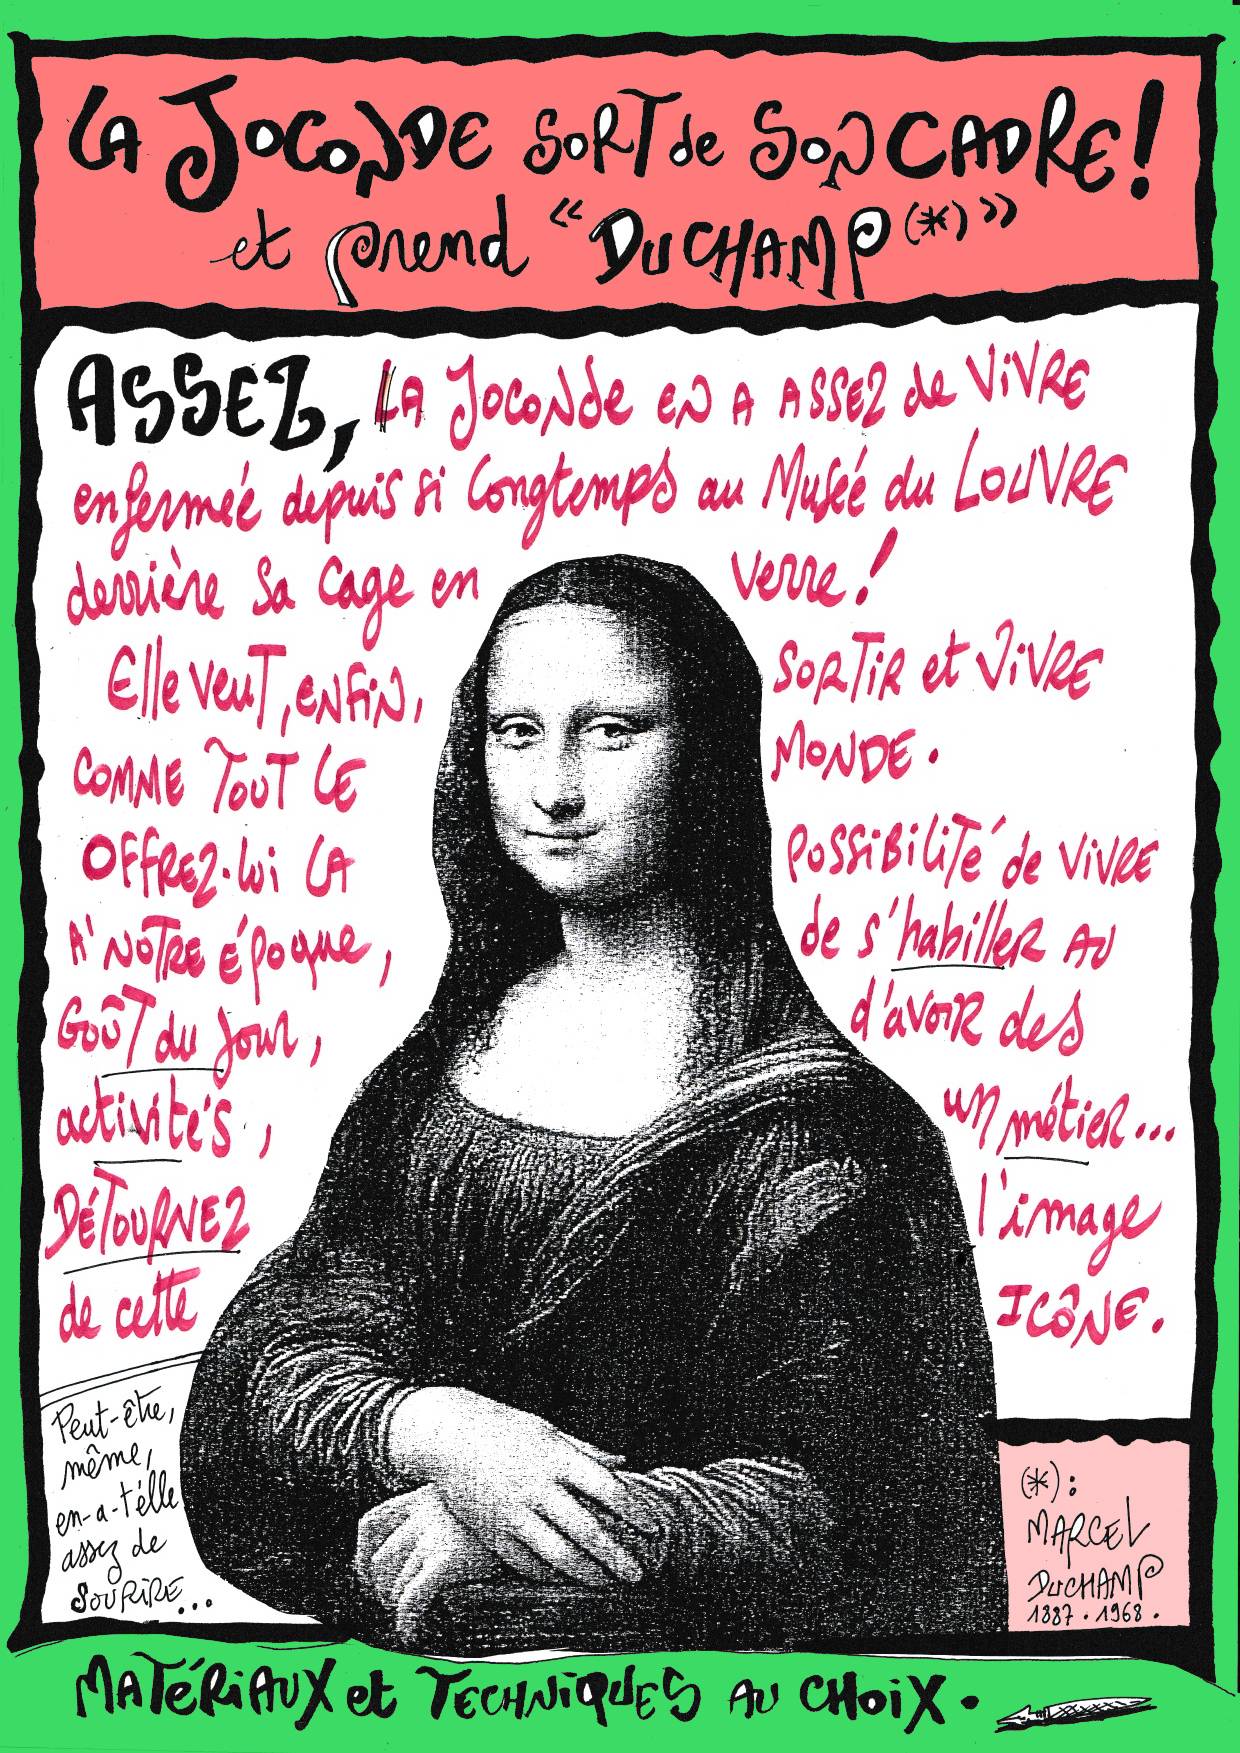 LA JOCONDE SORT de SON CADRE!
et prend "DUCHAMP(*)"
ASSEZ, LA JOCONDE EN A ASSEZ de VIVRE
enfermée depuis si longtemps au Musée du LOUVRE
derrière sa cage en verre!
Elle veut, enfin, SORTIR et VIVRE
COMME TOUT LE MONDE.
OFFREZ-lui LA POSSIBILITÉ de VIVRE
A' NOTRE Époque, de s'habiller AU
GOÛT du jour, d'avoir des
activités, un métier...
DÉTOURNEZ l'image
de cette ICÔNE.
Peut-être,
même,
en-a-t'elle
assez de
SOURIRE...
(*):
MARCEL
DUCHAMP
1887.1968.
MATÉRIAUX et TECHNIQUES AU CHOIX.